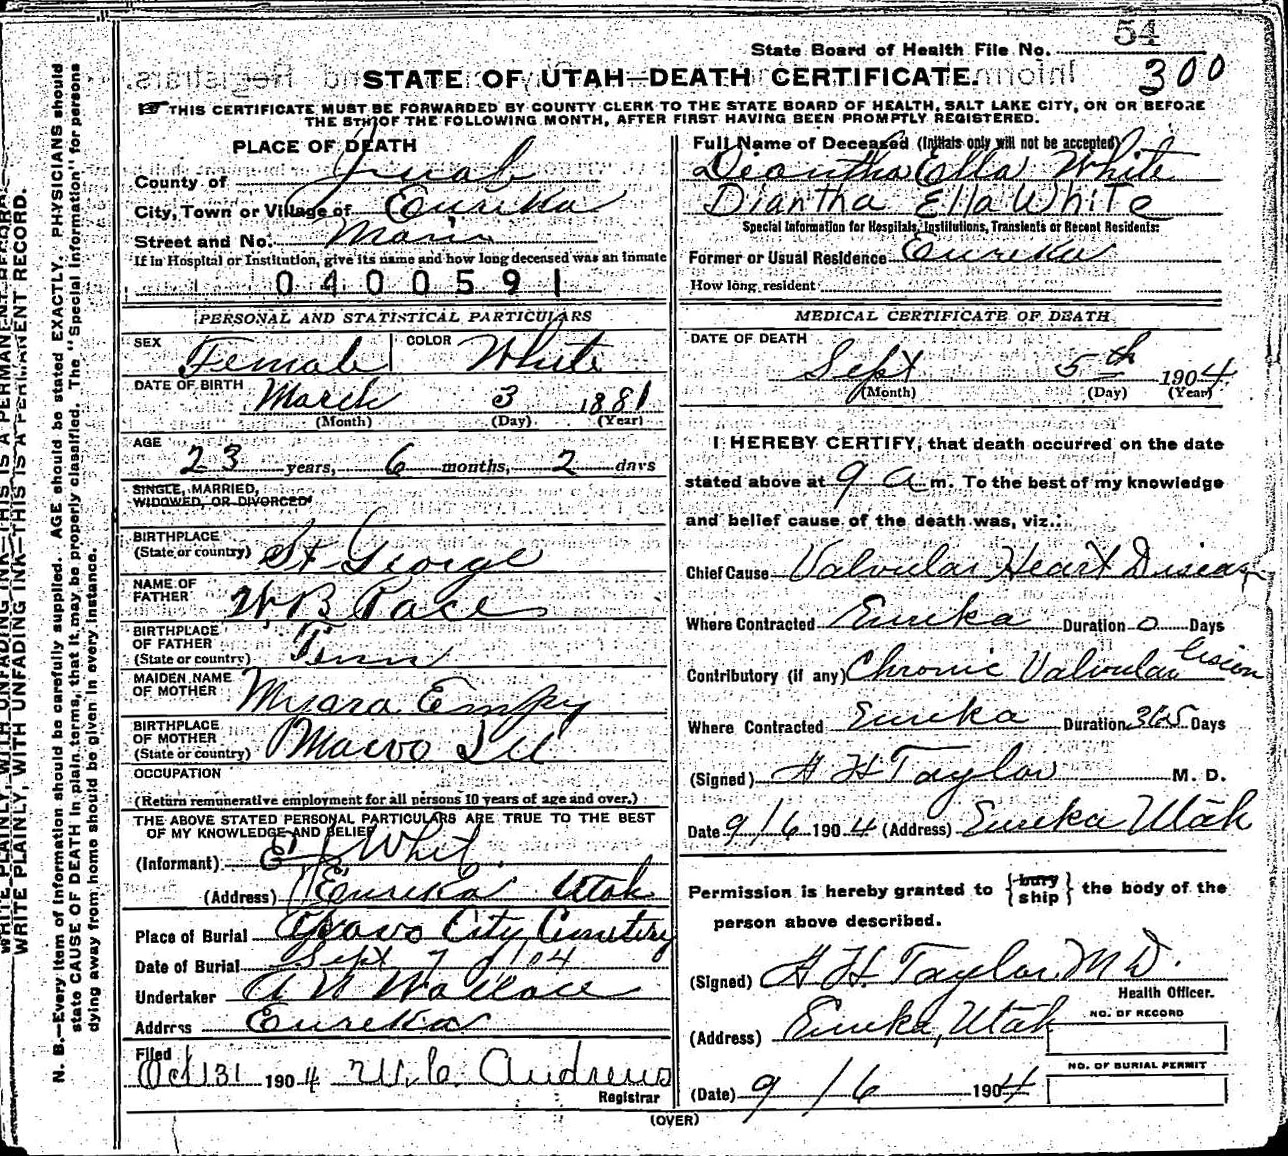 State Board of Health File No. 54
300
STATE OF UTAH—DEATH CERTIFICATE.
THIS CERTIFICATE MUST BE FORWARDED BY COUNTY CLERK TO THE STATE BOARD OF HEALTH, SALT LAKE CITY, ON OR BEFORE
THE 5TH OF THE FOLLOWING MONTH, AFTER FIRST HAVING BEEN PROMPTLY REGISTERED.
PLACE OF DEATH
County of Juab
City, Town or Village of Eureka
Street and No. Main
If in Hospital or Institution, give its name and how long deceased was an inmate
0400591
PERSONAL AND STATISTICAL PARTICULARS
SEX Female COLOR White
DATE OF BIRTH March 3 1881
(Month) (Day) (Year)
AGE
23 years, 6 months, 2 days
SINGLE, MARRIED,
WIDOWED, OR DIVORCED
BIRTHPLACE
(State or country) St George
NAME OF
FATHER W B Pace
BIRTHPLACE
OF FATHER
(State or country) Tenn
MAIDEN NAME
OF MOTHER Empy
BIRTHPLACE
OF MOTHER
(State or country)
OCCUPATION
(Return remunerative employment for all persons 10 years of age and over.)
THE ABOVE STATED PERSONAL PARTICULARS ARE TRUE TO THE BEST
OF MY KNOWLEDGE AND BELIEF
(Informant)
(Address) Eureka Utah
Place of Burial Provo City Cemetery
Date of Burial Sept 7 1904
Undertaker Wallace
Address Eureka
Filed
Oct 31 1904 W. C. Andrews
Registrar
Full Name of Deceased (Initials only will not be accepted)
Diantha Ella White
Diantha Ella White
Special Information for Hospitals, Institutions, Transients or Recent Residents:
Former or Usual Residence Eureka
How long resident
MEDICAL CERTIFICATE OF DEATH
DATE OF DEATH
Sept 5th 1904
(Month) (Day) (Year)
I HEREBY CERTIFY, that death occurred on the date
stated above at 9 a m. To the best of my knowledge
and belief cause of the death was, viz.:
Chief Cause Valvular Heart Disease
Where Contracted Eureka Duration 0 Days
Contributory (if any) Chronic Valvular lesion
Where Contracted Eureka Duration 365 Days
(Signed) H H Taylor M. D.
Date 9/6 1904 (Address) Eureka Utah
Permission is hereby granted to {bury ship} the body of the
person above described.
(Signed) H H. Taylor M D.
Health Officer.
(Address) Eureka, Utah
NO. OF RECORD
NO. OF BURIAL PERMIT
(Date) 9/6 1904
(OVER)
WRITE PLAINLY, WITH UNFADING INK—THIS IS A PERMANENT RECORD.
WRITE PLAINLY, WITH UNFADING INK—THIS IS A PERMANENT RECORD.
N. B.—Every item of information should be carefully supplied. AGE should be stated EXACTLY. PHYSICIANS should
state CAUSE OF DEATH in plain terms, that it may be properly classified. The "Special Information" for persons
dying away from home should be given in every instance.